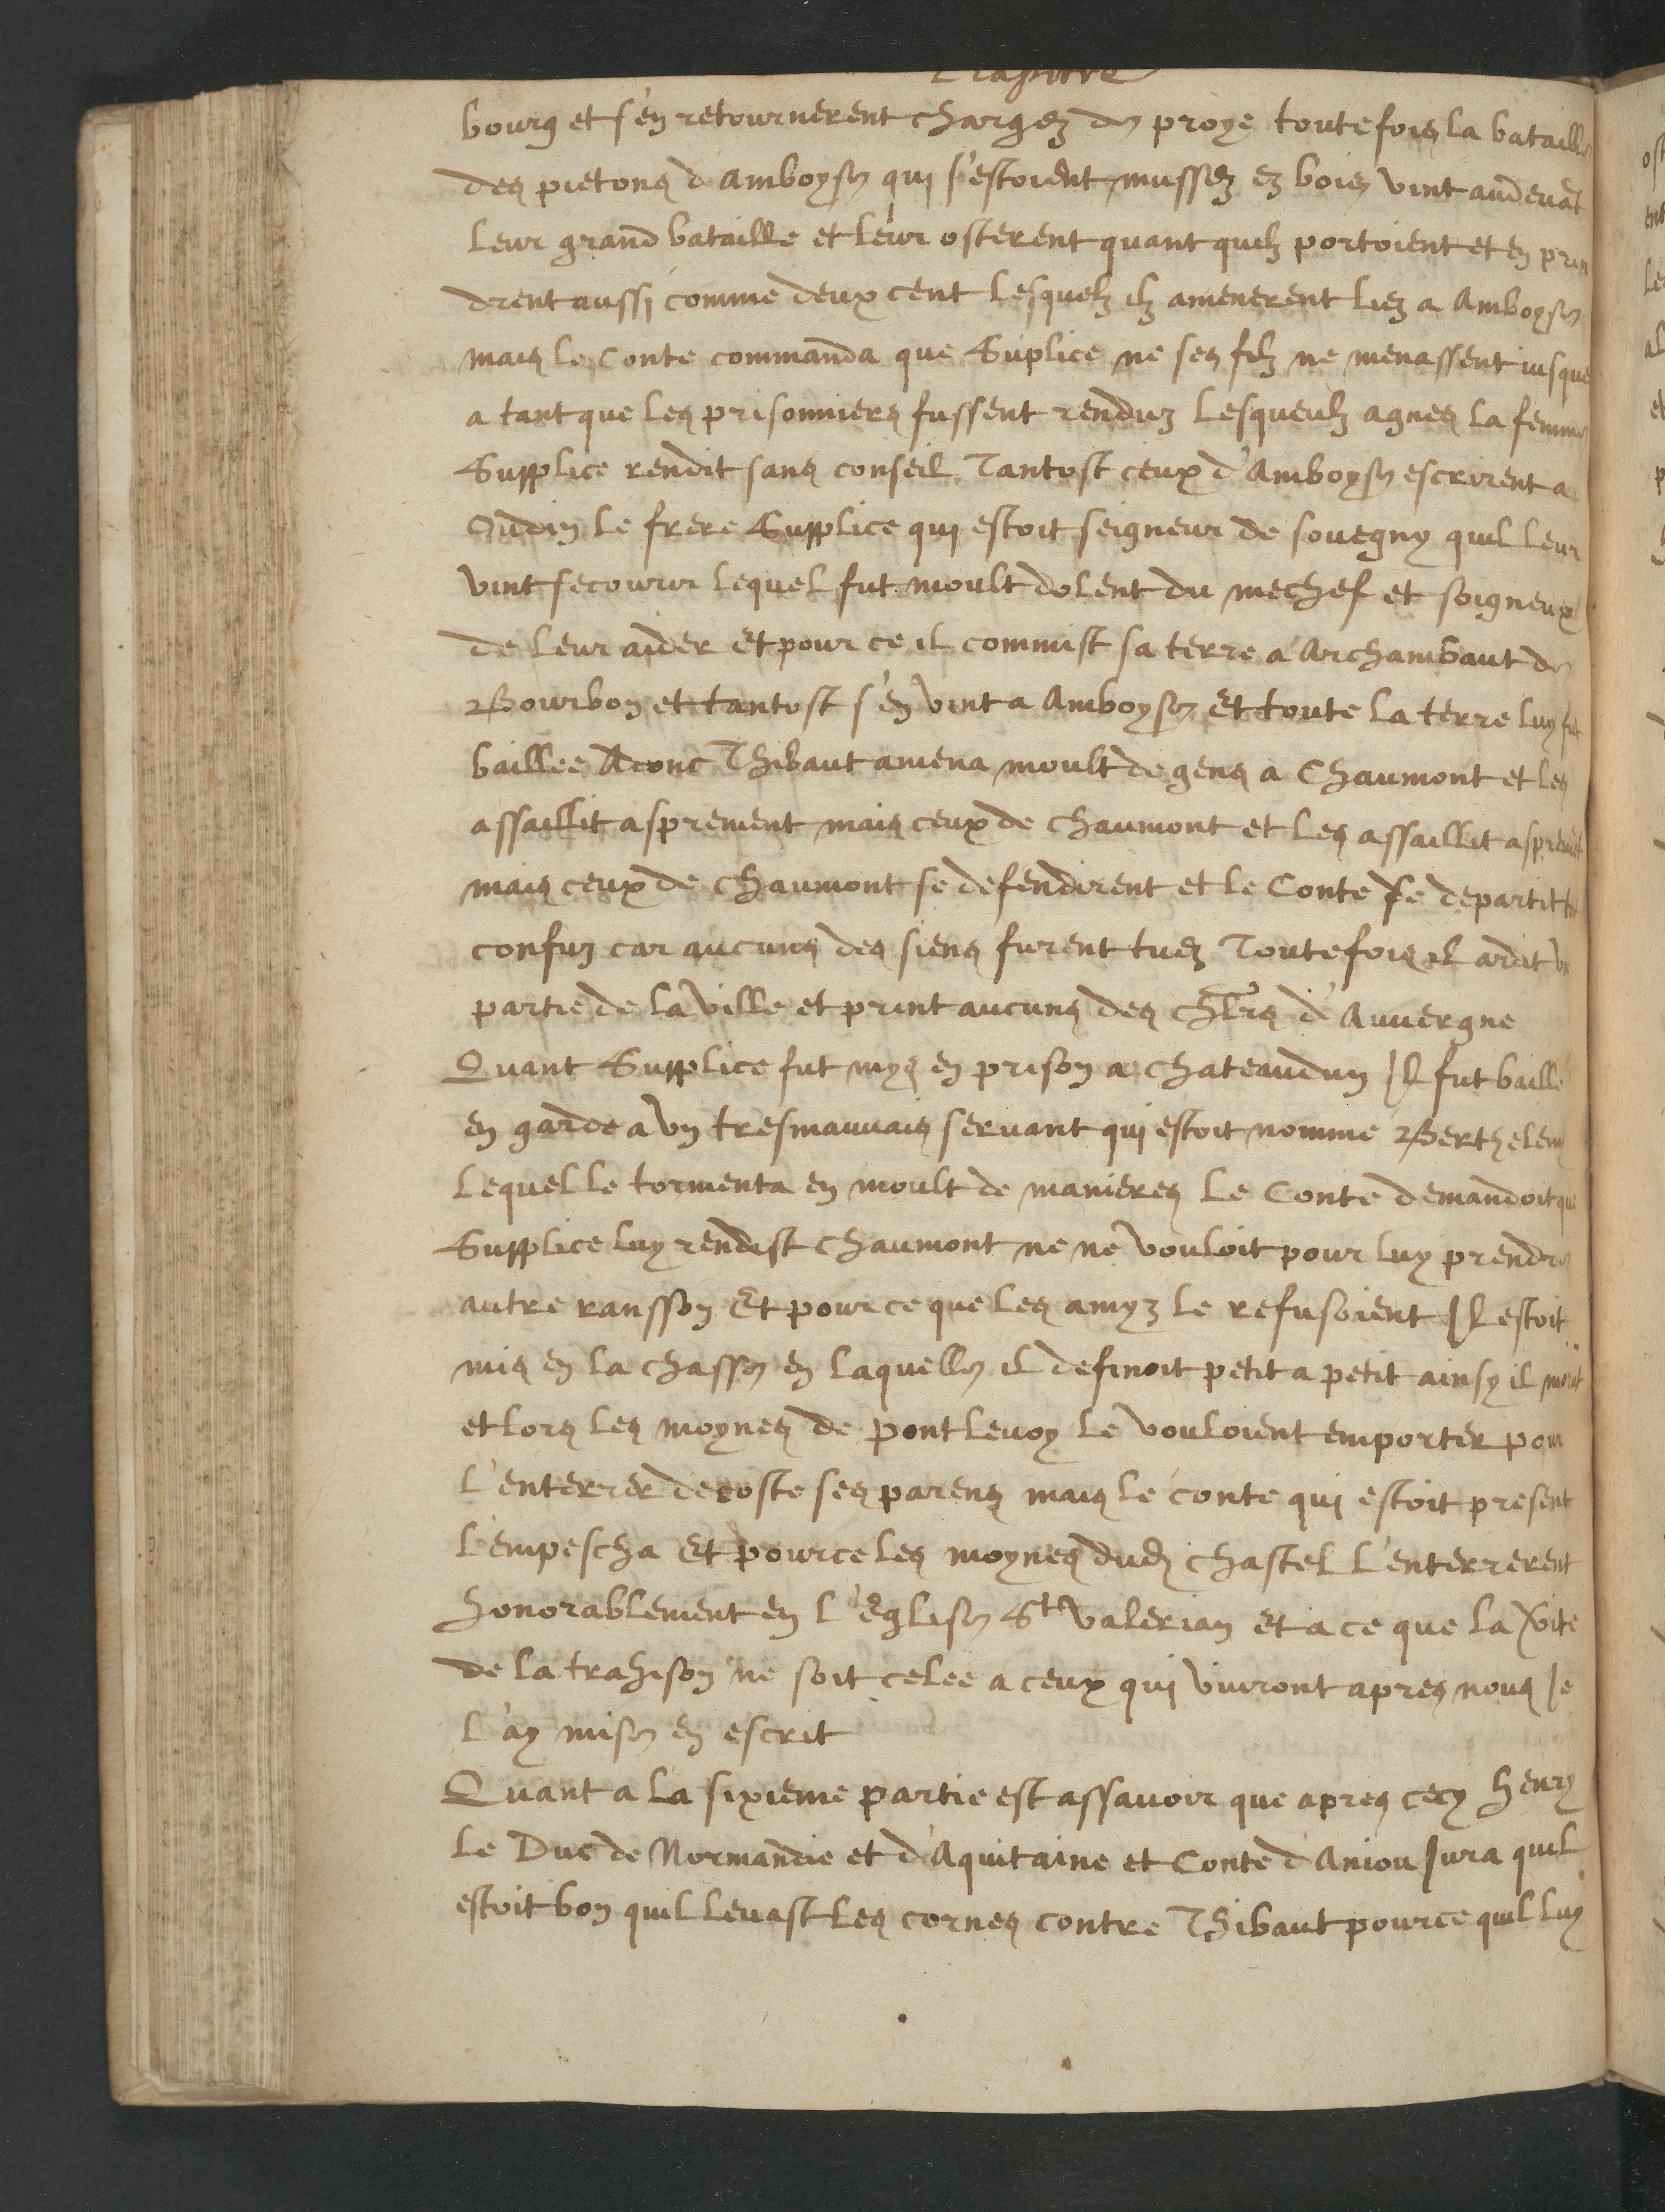 Chapitre
bourg et s'en retournerent chargez de proye toutefois la bataille
des pietons d'Amboyse qui s'estoient mussez ez bois vint audevāt
leur grand bataille et leur osterent quant quelz portoient et en prin
drent aussi comme deux cent lesquelz ilz amenerent liez a Amboyse
mais le Conte commanda que Suplice ne ses filz ne menassent iusque
a tant que les prisonniers fussent renduz lesqueulz agnes la femme
Supplice rendit sans conseil Tantost ceux d'Amboyse escrirent a
Oudin le frere Supplice qui estoit seigneur de souegny quil leur
vint secourir lequel fut moult dolent du mechef et soigneux
de leur aider Et pour ce il commist sa terre a Archambaut de
Bourbon et tantost s'en vint a Amboyse Et toute la terre luy fut
baillee Adonc Thibaut amena moult de gens a Chaumont et les
assaillit asprement mais ceux de Chaumont et les assaillit asprement
mais ceux de Chaumont se defendirent et le Conte se departit
confuz car aucuns des siens furent tuez Toutefois il ardit
partie de la ville et print aucuns des chlr̄s d'Auvergne
Quant Supplice fut mys en prison a chateaudun Il fut baillé
en garde a un tresmauvais seruant qui estoit nommé Berthelem
lequel le tormenta en moult de manieres Le Conte demandoit que
Supplice luy rendist Chaumont ne ne vouloit pour luy prendre
autre ransson Et pource que les amyz le refusoient Il estoit
mis en la chasse en laquelle il definoit petit a petit ainsy il morut
et lors les moynes de pontleuoy le vouloient emporter pour
l'enterrer decoste ses parens mais le conte qui estoit present
l'empescha Et pource les moynes dud chastel l'enterrerent
honorablement en l'Eglise St Valerian Et a ce que la v̄ite
de la trahison ne soit celee a ceux qui viuront apres nous Ie
l'ay mise en escrit
Quant a la sixieme partie est assauoir que apres cecy Henry
le Duc de Normandie et d'Aquitaine et Conte d'Aniou Iura quil
estoit bon quil leuast les cornes contre Thibaut pource quil luy